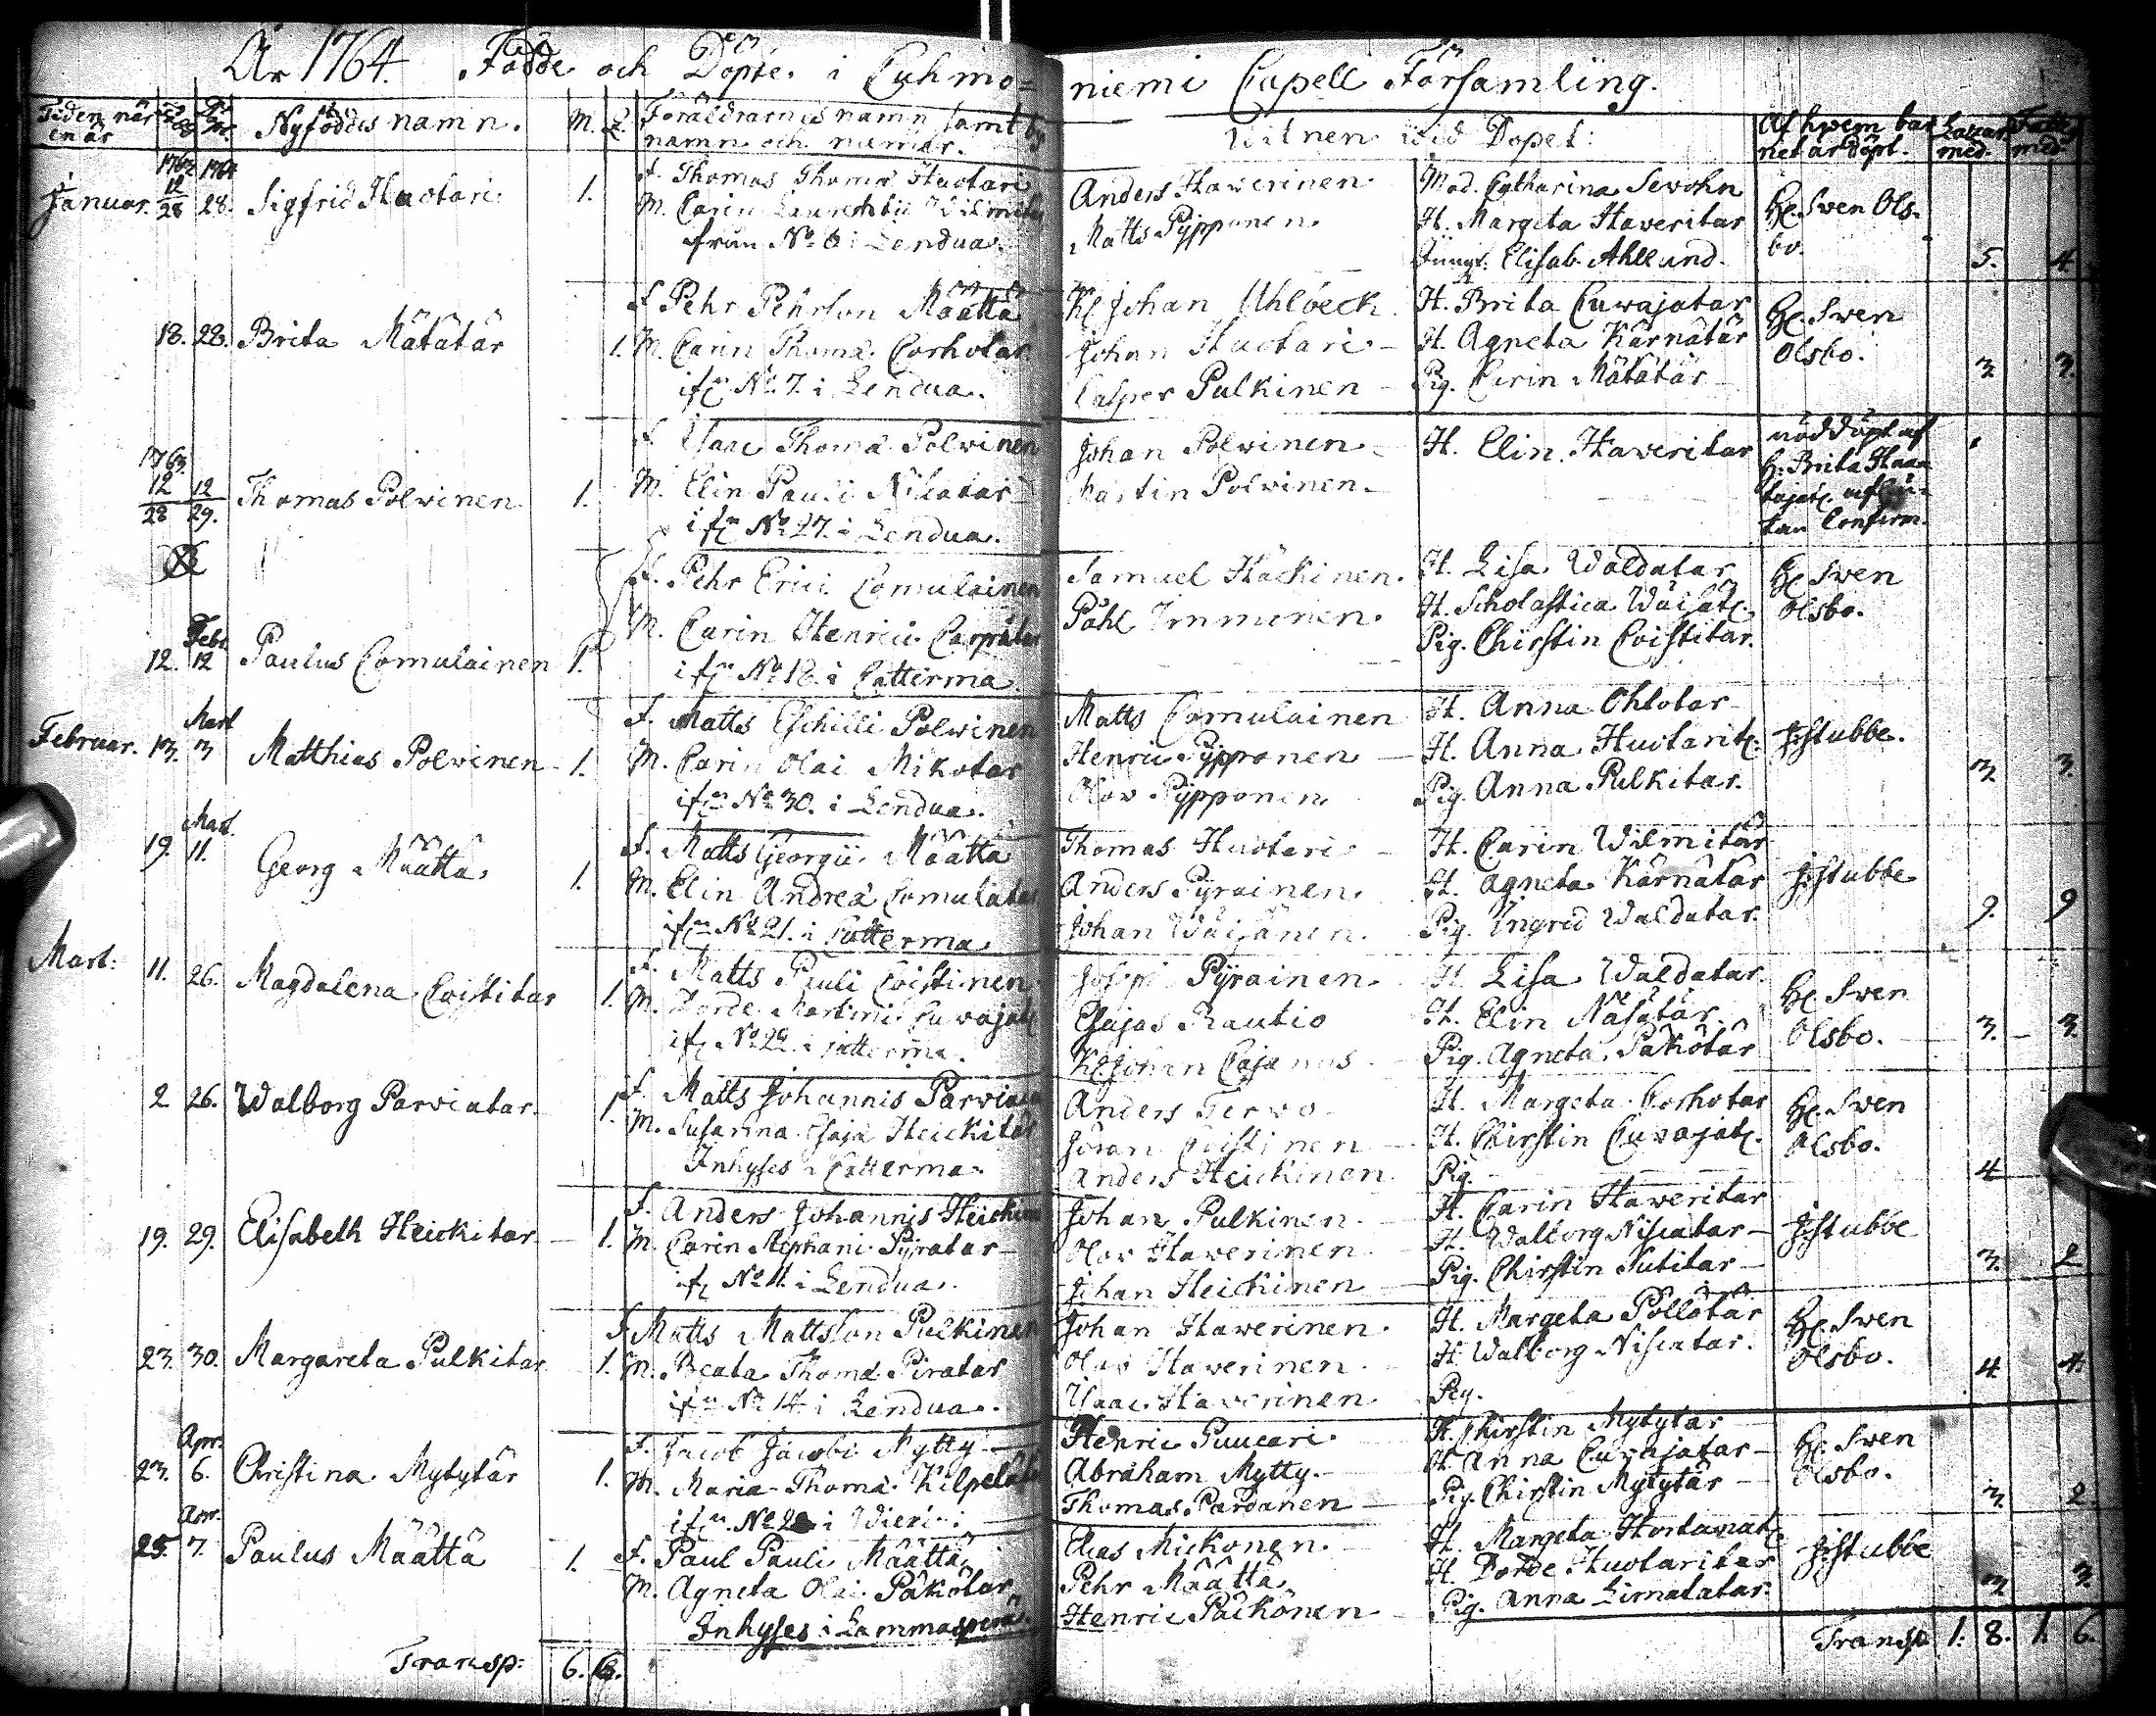 År 1764. Födde och Döpte i Cuhmo=niemi Capell Församling.
Tiden när
en är
Nyföddes namn.
M. Q.
Föräldrarnes namn samt by
namn och numer.
Witnen wid Dopet:
Af hwem bar
net är Döpt.
med. med
Januar. 1763 12/28 1764 28. Sigfrid Huotari 1.
F. Thomas Thomæ Huotari
M. Carin Laurentii Wilmitar
från No 6 i Lendua.
Anders Hawerinen
Matts Pÿpponen.
Mad. Catharina Sewohn
H. Margeta Haveritar
Jungf. Elisab. Ahllund.
H. Swen Ols-
bo.
5. 4
18. 28. Brita Mätätär 1.
F. Pehr Pehrson Määttä
M. Carin Thomæ Corhotar
No 7. i Lendua.
Johan Uhlbeck
Johan Huotari
Casper Pulkinen
H. Brita Cuwajatar
H. Agneta Kärnätär
Pig. Carin Mätätär
H. Swen
Olsbo.
3 3.
1763 12/28 12/29. Thomas Polwinen 1.
F. Isaac Thomæ Polwinen
M. Elin Pauli
No 27. i Lendua.
Johan Polwinen
Martin Polwinen
H. Elin Haveritar
nöddöpt af
H. Brita
tan Confirm.
12. Febr 12 Paulus Comulainen 1.
F. Pehr Erici Comulainen
M. Carin Henrici
No 18. i Catterma
Samuel Häckinen.
Påhl Immonen.
H. Lisa Waldatar
H. Scholastica
Pig. Chirstin Coistitar.
H. Swen
Olsbo.
Februar. 13. Mart 3 Matthias Polvinen 1.
F. Matts Eschilli Polwinen
M. Carin Olai Mikotar
No 30. i Lendua.
Matts Comulainen
Henric Pÿpponen
Olov Pÿpponen
H. Anna Ohlotar
H. Anna Huotarit.
Pig. Anna Pulkitar.
Hstubbe.
3 3.
19. Mart. 11. Georg Määttä 1.
F. Matts Georgii Määttä
M. Elin Andreæ Comulatar
No 21. i Catterma
Thomas Huotari
Anders Pyrainen.
Johan Wäisänen.
H. Carin Wilmitär
H. Agneta Kärnätär
Pig. Ingred Waldatar.
Hstubbe
9. 9
Mart: 11. 26. Magdalena Coistitar 1.
F. Matts Pauli Coistinen
M. Dorde Martini Cuwajat.
No 29 i Catterma.
Josep Pÿrainen.
Esajas Rautio
Johan Cajanus
H. Lisa Waldatar.
H. Elin Näsätär.
Pig. Agneta Päkötär
H. Swen
Olsbo.
3. 3.
2 26. Walborg Parviatar. 1.
F. Matts Johannis Parviai
M. Susanna Esajæ Heickitar
Inhyses i Catterma
Anders Terwo
Göran Coistinen
Anders Heickinen
H. Margeta Corhotar
H. Chirstin Cuwajat.
Pig.
H. Swen
Olsbo.
4
19. 29. Elisabeth Heickitar 1.
F. Anders Johannis Heickin
M. Carin Stephani Pyratar
No 11. i Lendua.
Johan Pulkinen
Olov Hawerinen
Johan Heickinen
H. Carin Haweritar
H. Walborg Niscatar
Pig. Chirstin Sutitar
Hstubbe
3. 2
23. 30. Margareta Pulkitar 1.
F. Matts Mattsson Pulkinen
M. Beata Thomæ Piratar
No 14. i Lendua.
Johan Hawerinen.
Olov Hawerinen.
Isaac Hawerinen
H. Margeta Pöllätär
H. Walborg Niscatar.
Pig.
H. Swen
Olsbo.
4 4.
23. Apr. 6. Christina Mytytär 1.
F. Jacob Jacobi Mytty
M. Maria Thomæ
No 2 i Wieri
Henric Puucari
Abraham Mytty.
Thomas Pardanen
H. Chirstin Mytytär
H. Anna Cuwajatar
Pig. Chirstin Mytytär
H. Swen
Olsbo.
3. 2.
25. Apr. 7. Paulus Määttä 1.
F. Paul Pauli Määttä
M. Agneta Olai Päkötar
Inhyses i Lammasperä.
Elias Mickonen.
Pehr Määttä
Henric Päckönen
H. Margeta
H. Dorde Huotaritar
Pig. Anna Limatatar.
Hstubbe
3 3.
Transp: 6. 6.
Transp 1: 8. 1. 6.